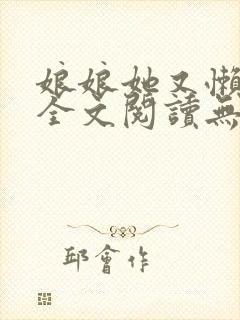 娘娘她又懶
全文閱讀無
邱會作